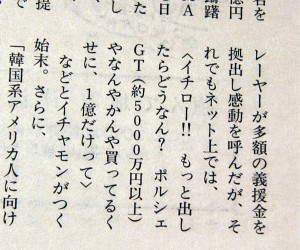 名を
億円
躊躇
レーヤーが多額の義援金を
拠出し感動を呼んだが、そ
れでもネット上では、
〈イチロー!! もっと出し
たらどうなん? ポルシェ
GT(約5000万円以上)
やなんやかんや買ってるく
せに、1億だけって〉
などとイチャモンがつく
始末。さらに、
「韓国系アメリカ人に向け